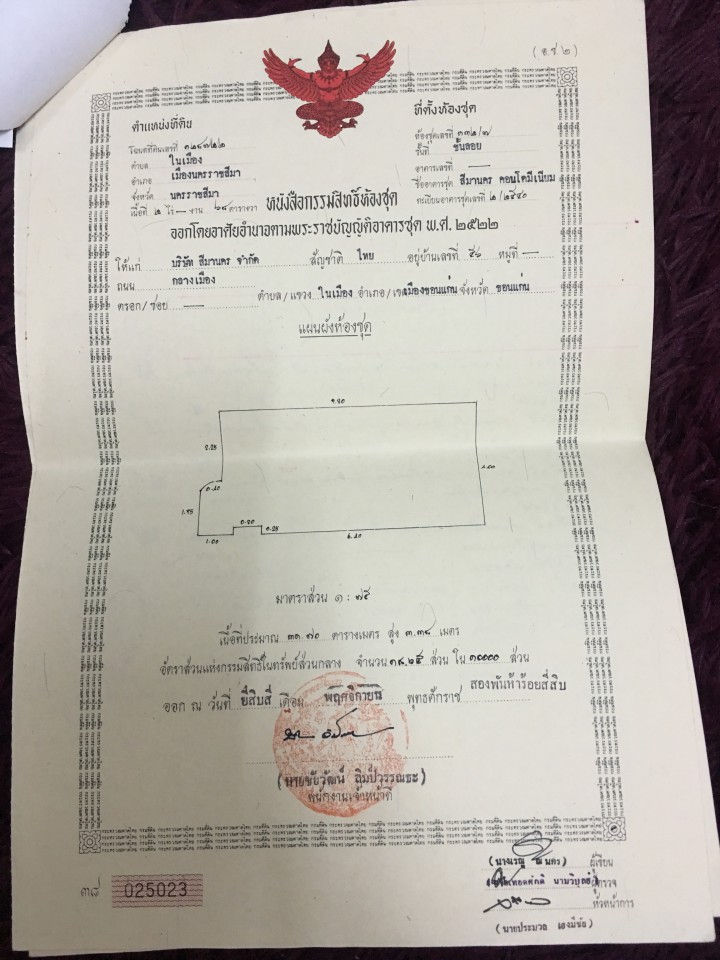 (อ.ช.๒)
ตำแหน่งที่ดิน
โฉนดที่ดินเลขที่
ตำบล ในเมือง
อำเภอ เมืองนครราชสีมา
จังหวัด นครราชสีมา
เนื้อที่ ๒ ไร่ — งาน ๖๘ ตารางวา
ที่ตั้งห้องชุด
ห้องชุดเลขที่ ๓๓๒/๗
ชั้นที่ ชั้นลอย
อาคารเลขที่ —
ชื่ออาคารชุด สีมานคร คอนโดมิเนียม
ทะเบียนอาคารชุดเลขที่ ๒/๒๕๔๐
หนังสือกรรมสิทธิ์ห้องชุด
ออกโดยอาศัยอำนาจตามพระราชบัญญัติอาคารชุด พ.ศ. ๒๕๒๒
ให้แก่ บริษัท สีมานคร จำกัด สัญชาติ ไทย อยู่บ้านเลขที่ ๕๖ หมู่ที่ —
ถนน กลางเมือง
ตรอก/ซอย — ตำบล/แขวง ในเมือง อำเภอ/เขต เมืองขอนแก่น จังหวัด ขอนแก่น
แผนผังห้องชุด
2.25
0.40
4.00
1.75
1.00
0.25
6.40
มาตราส่วน ๑ : ๗๕
เนื้อที่ประมาณ ๓๑.๗๐ ตารางเมตร สูง ๓.๓๘ เมตร
อัตราส่วนแห่งกรรมสิทธิ์ในทรัพย์ส่วนกลาง จำนวน ๑๘.๒๕ ส่วน ใน ๑๐๐๐๐ ส่วน
ออก ณ วันที่ ยี่สิบสี่ เดือน พฤศจิกายน พุทธศักราช สองพันห้าร้อยสี่สิบ
(นายชัยวัฒน์ ลิมป์วรรณธะ)
พนักงานเจ้าหน้าที่
๓๘ 025023
ผู้เขียน
ผู้ตรวจ
หัวหน้าการ
(นายประมวล เฮงมีชัย)